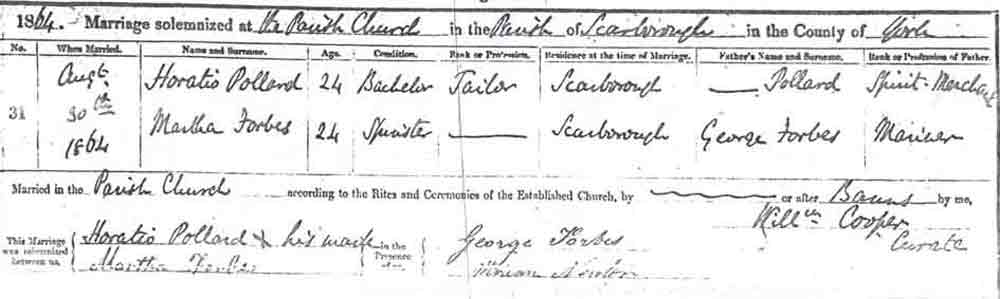 1864. Marriage solemnized at the Parish Church in the Parish of Scarborough in the County of York
No. When Married. Name and Surname. Age. Condition. Rank or Profession. Residence at the time of Marriage. Father's Name and Surname. Rank or Profession of Father.
31 Augt. 30th 1864
Horatio Pollard 24 Bachelor Tailor Scarborough —— Pollard Spirit-Merchant
Martha Forbes 24 Spinster —— Scarborough George Forbes Mariner
Married in the Parish Church according to the Rites and Ceremonies of the Established Church, by —— or after Banns by me,
Willm Cooper
Curate
This Marriage was solemnized between us, Horatio Pollard X his mark in the Presence of us, George Forbes
Martha Forbes Newton